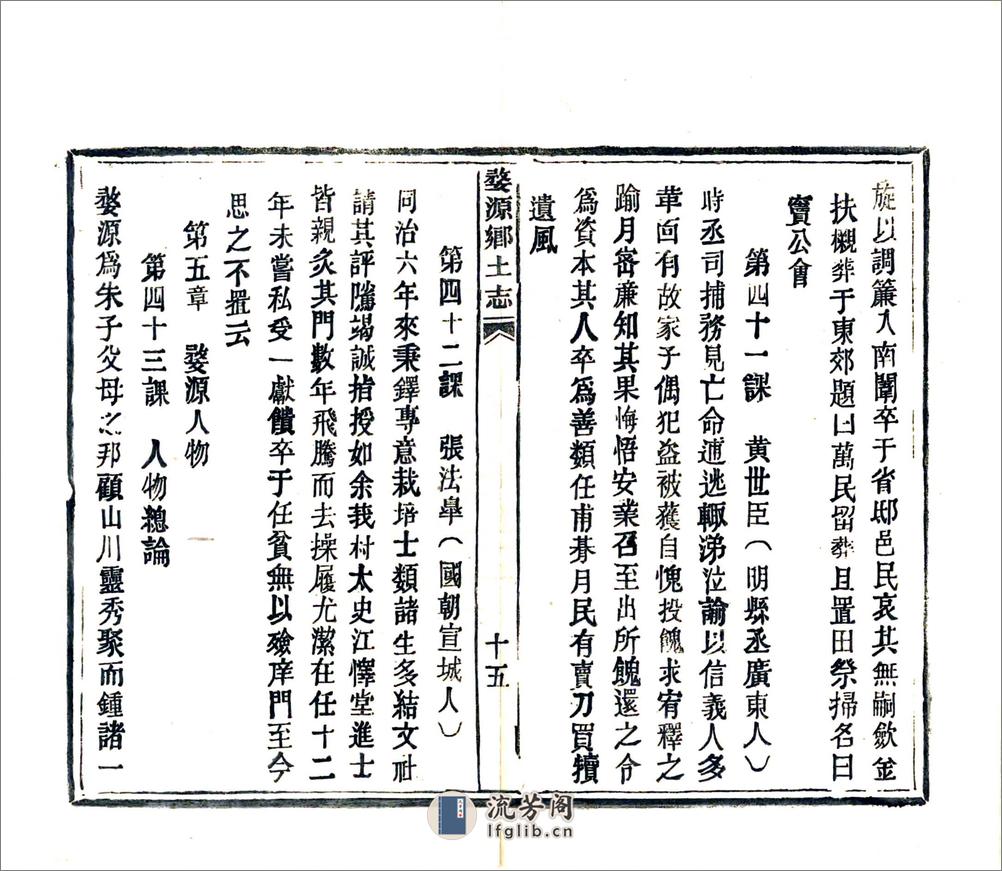 旋以調簾入南闈卒于省邸邑民哀其無嗣歛金
扶櫬葬于東郊題曰萬民留葬且置田祭掃名曰
竇公會
第四十一課　黃世臣（明縣丞廣東人）
時丞司捕務見亡命逋逃輙涕泣諭以信義人多
革面有故家子偶犯盜被獲自愧投餽求宥釋之
踰月密亷知其果悔悟安業召至出所餽還之令
爲資本其人卒爲善類任甫朞月民有賣刀買犢
遺風
婺源鄉土志
十五
第四十二課　張法皋（國朝宣城人）
同治六年來秉鐸專意栽培士類諸生多結文社
請其評隲竭誠指授如余我村太史江懌堂進士
皆親炙其門數年飛騰而去操履尤潔在任十二
年未嘗私受一獻饋卒于任貧無以殮庠門至今
思之不置云
第五章　婺源人物
第四十三課　人物總論
婺源爲朱子父母之邦顧山川靈秀聚而鍾諸一
流芳阁
lfglib.cn